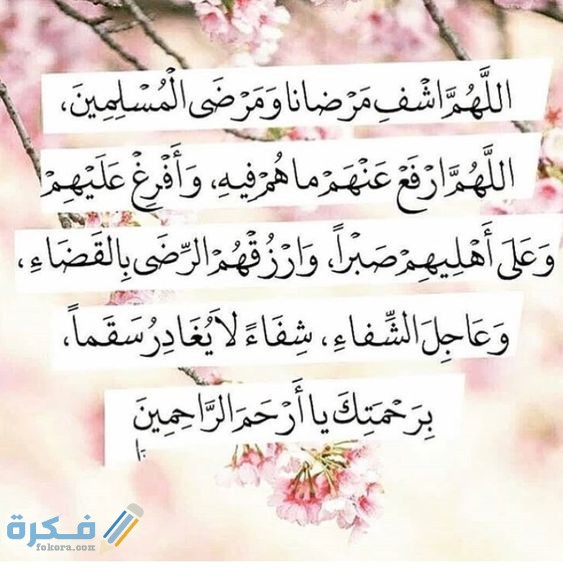 اللَّهُمَّ اشْفِ مَرْضانا وَمَرْضَى الْمُسْلِمِينَ،
اللَّهُمَّ ارْفَعْ عَنْهَمْ ما هُمْ فِيهِ، وَأَفْرِغْ عَلَيْهِمْ
وَعَلَى أَهْلِيهِمْ صَبْراً، وَارْزُقْهُمْ الرِّضَى بِالقَضَاءِ،
وَعَاجِلَ الشِّفاءِ، شِفَاءً لاَ يُغَادِرُ سَقَماً،
بِرَحْمَتِكَ يا أَرْحَمَ الرَّاحِمِينَ
فكرة
fokora.com